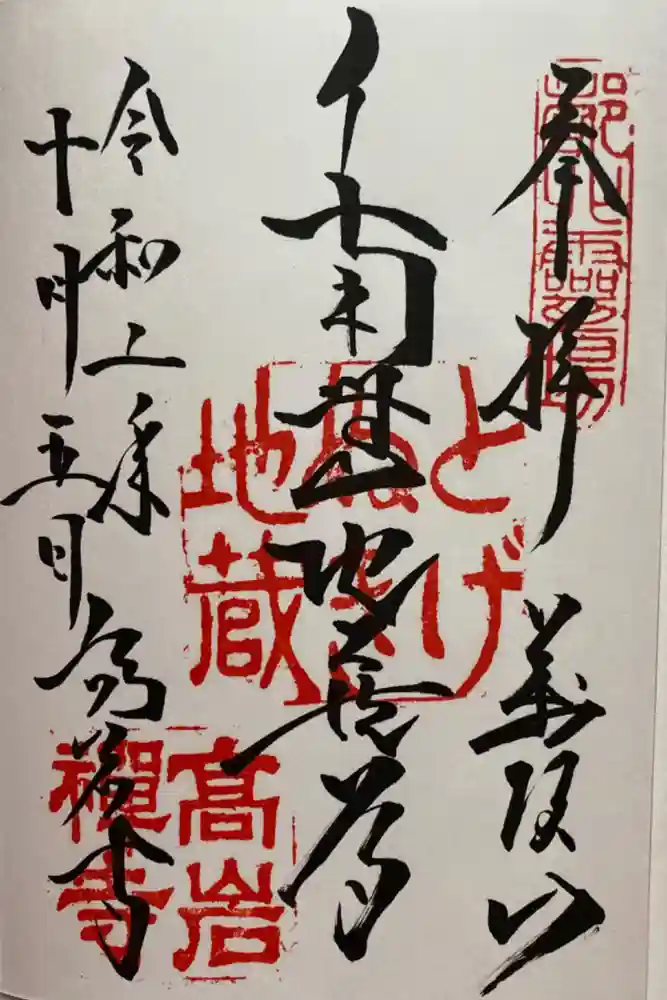 奉拝 萬頂山
南無地蔵尊
令和二年
十月五日 高岩寺
とげ
ぬき
地蔵
高岩
禪寺